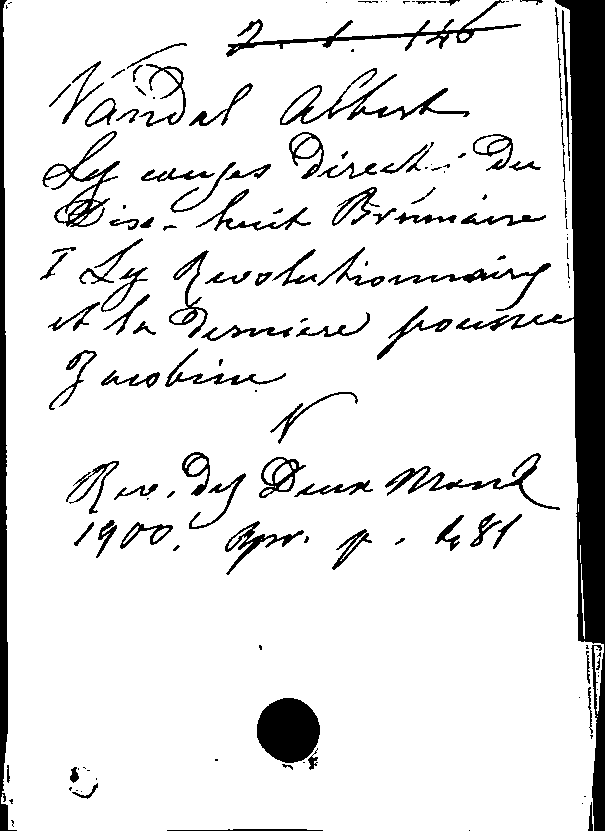 2. 1. 146
Vandal Albert
Les causes directes du
Dix-huit Brumaire
I Les Revolutionnaires
et la derniere poussee
Jacobine
V
Rev. des Deux Mond
1900. Apr. p. 481